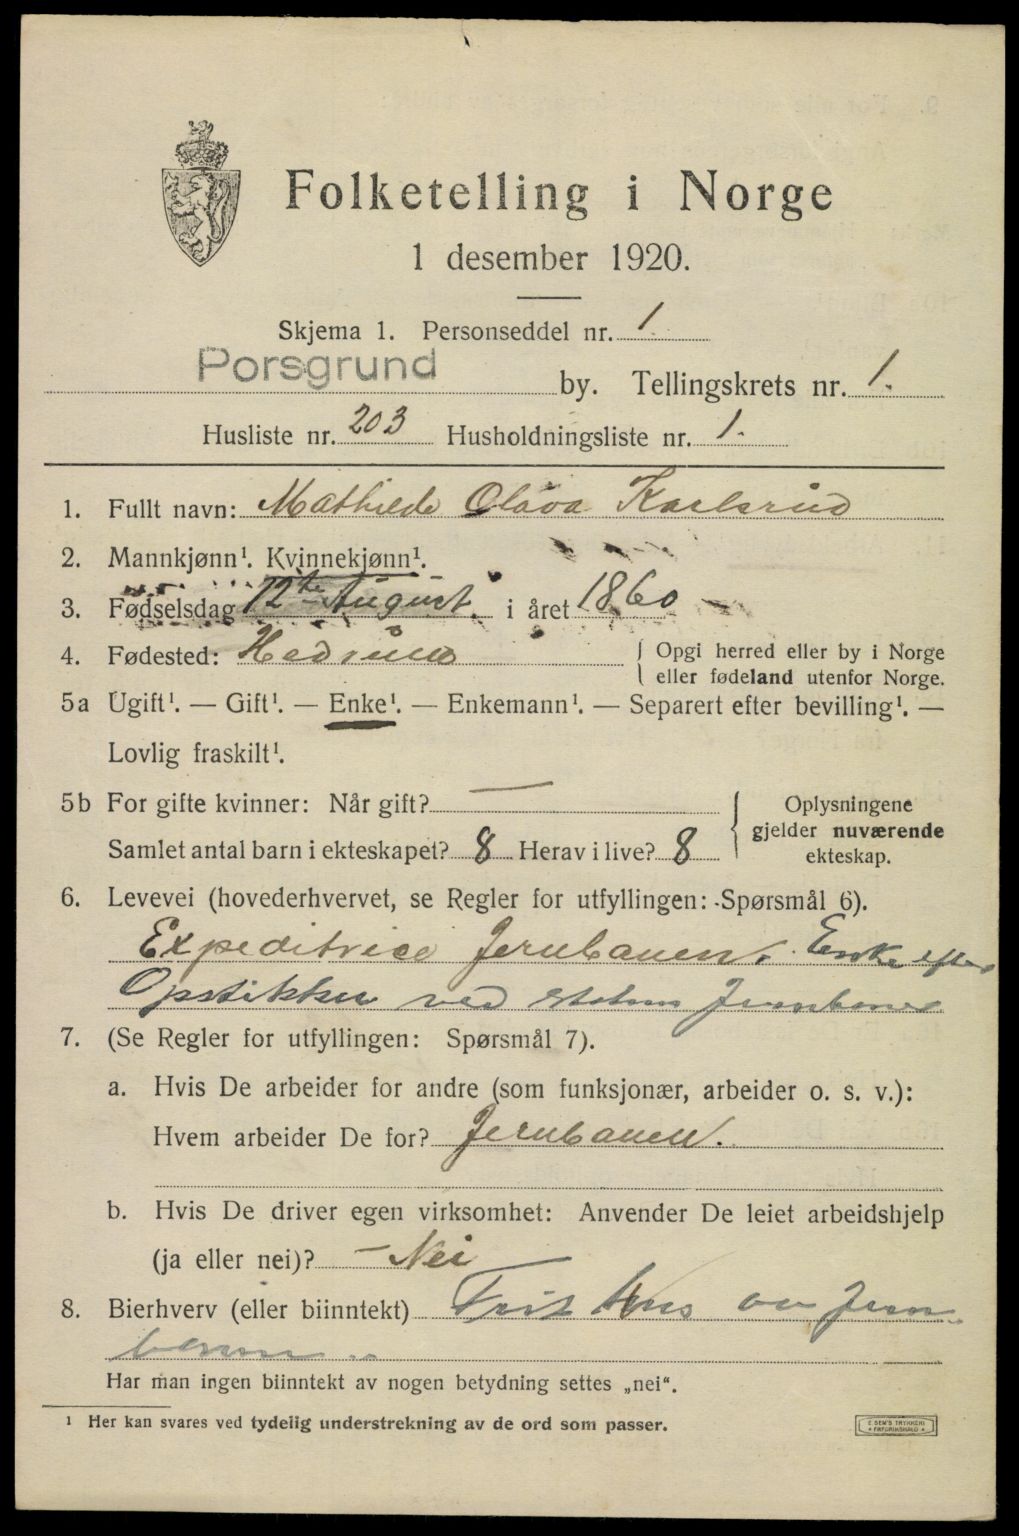 Folketelling i Norge
1 desember 1920.
Skjema 1. Personseddel nr. 1
Porsgrund by. Tellingskrets nr. 1.
Husliste nr. 203 Husholdningsliste nr. 1.
1. Fullt navn: Mathilde Olava Karlsrud
2. Mannkjønn¹. Kvinnekjønn¹.
3. Fødselsdag 12te August. i året 1860
4. Fødested: Hedrum { Opgi herred eller by i Norge
eller fødeland utenfor Norge.
5a Ugift¹. — Gift¹. — Enke¹. — Enkemann¹. — Separert efter bevilling¹. —
Lovlig fraskilt¹.
5b For gifte kvinner: Når gift? —
Samlet antal barn i ekteskapet? 8 Herav i live? 8
Oplysningene
gjelder nuværende
ekteskap.
6. Levevei (hovederhvervet, se Regler for utfyllingen: Spørsmål 6).
Expeditrice Jernbanen. Enke efter
ved statens Jernbane
7. (Se Regler for utfyllingen: Spørsmål 7).
a. Hvis De arbeider for andre (som funksjonær, arbeider o. s. v.):
Hvem arbeider De for? Jernbanen.
b. Hvis De driver egen virksomhet: Anvender De leiet arbeidshjelp
(ja eller nei)? — Nei
8. Bierhverv (eller biinntekt) Frit hus av Jern-
banen
Har man ingen biinntekt av nogen betydning settes „nei“.
¹ Her kan svares ved tydelig understrekning av de ord som passer.
E SEM'S TRYKKERI
FREDRIKSHALD